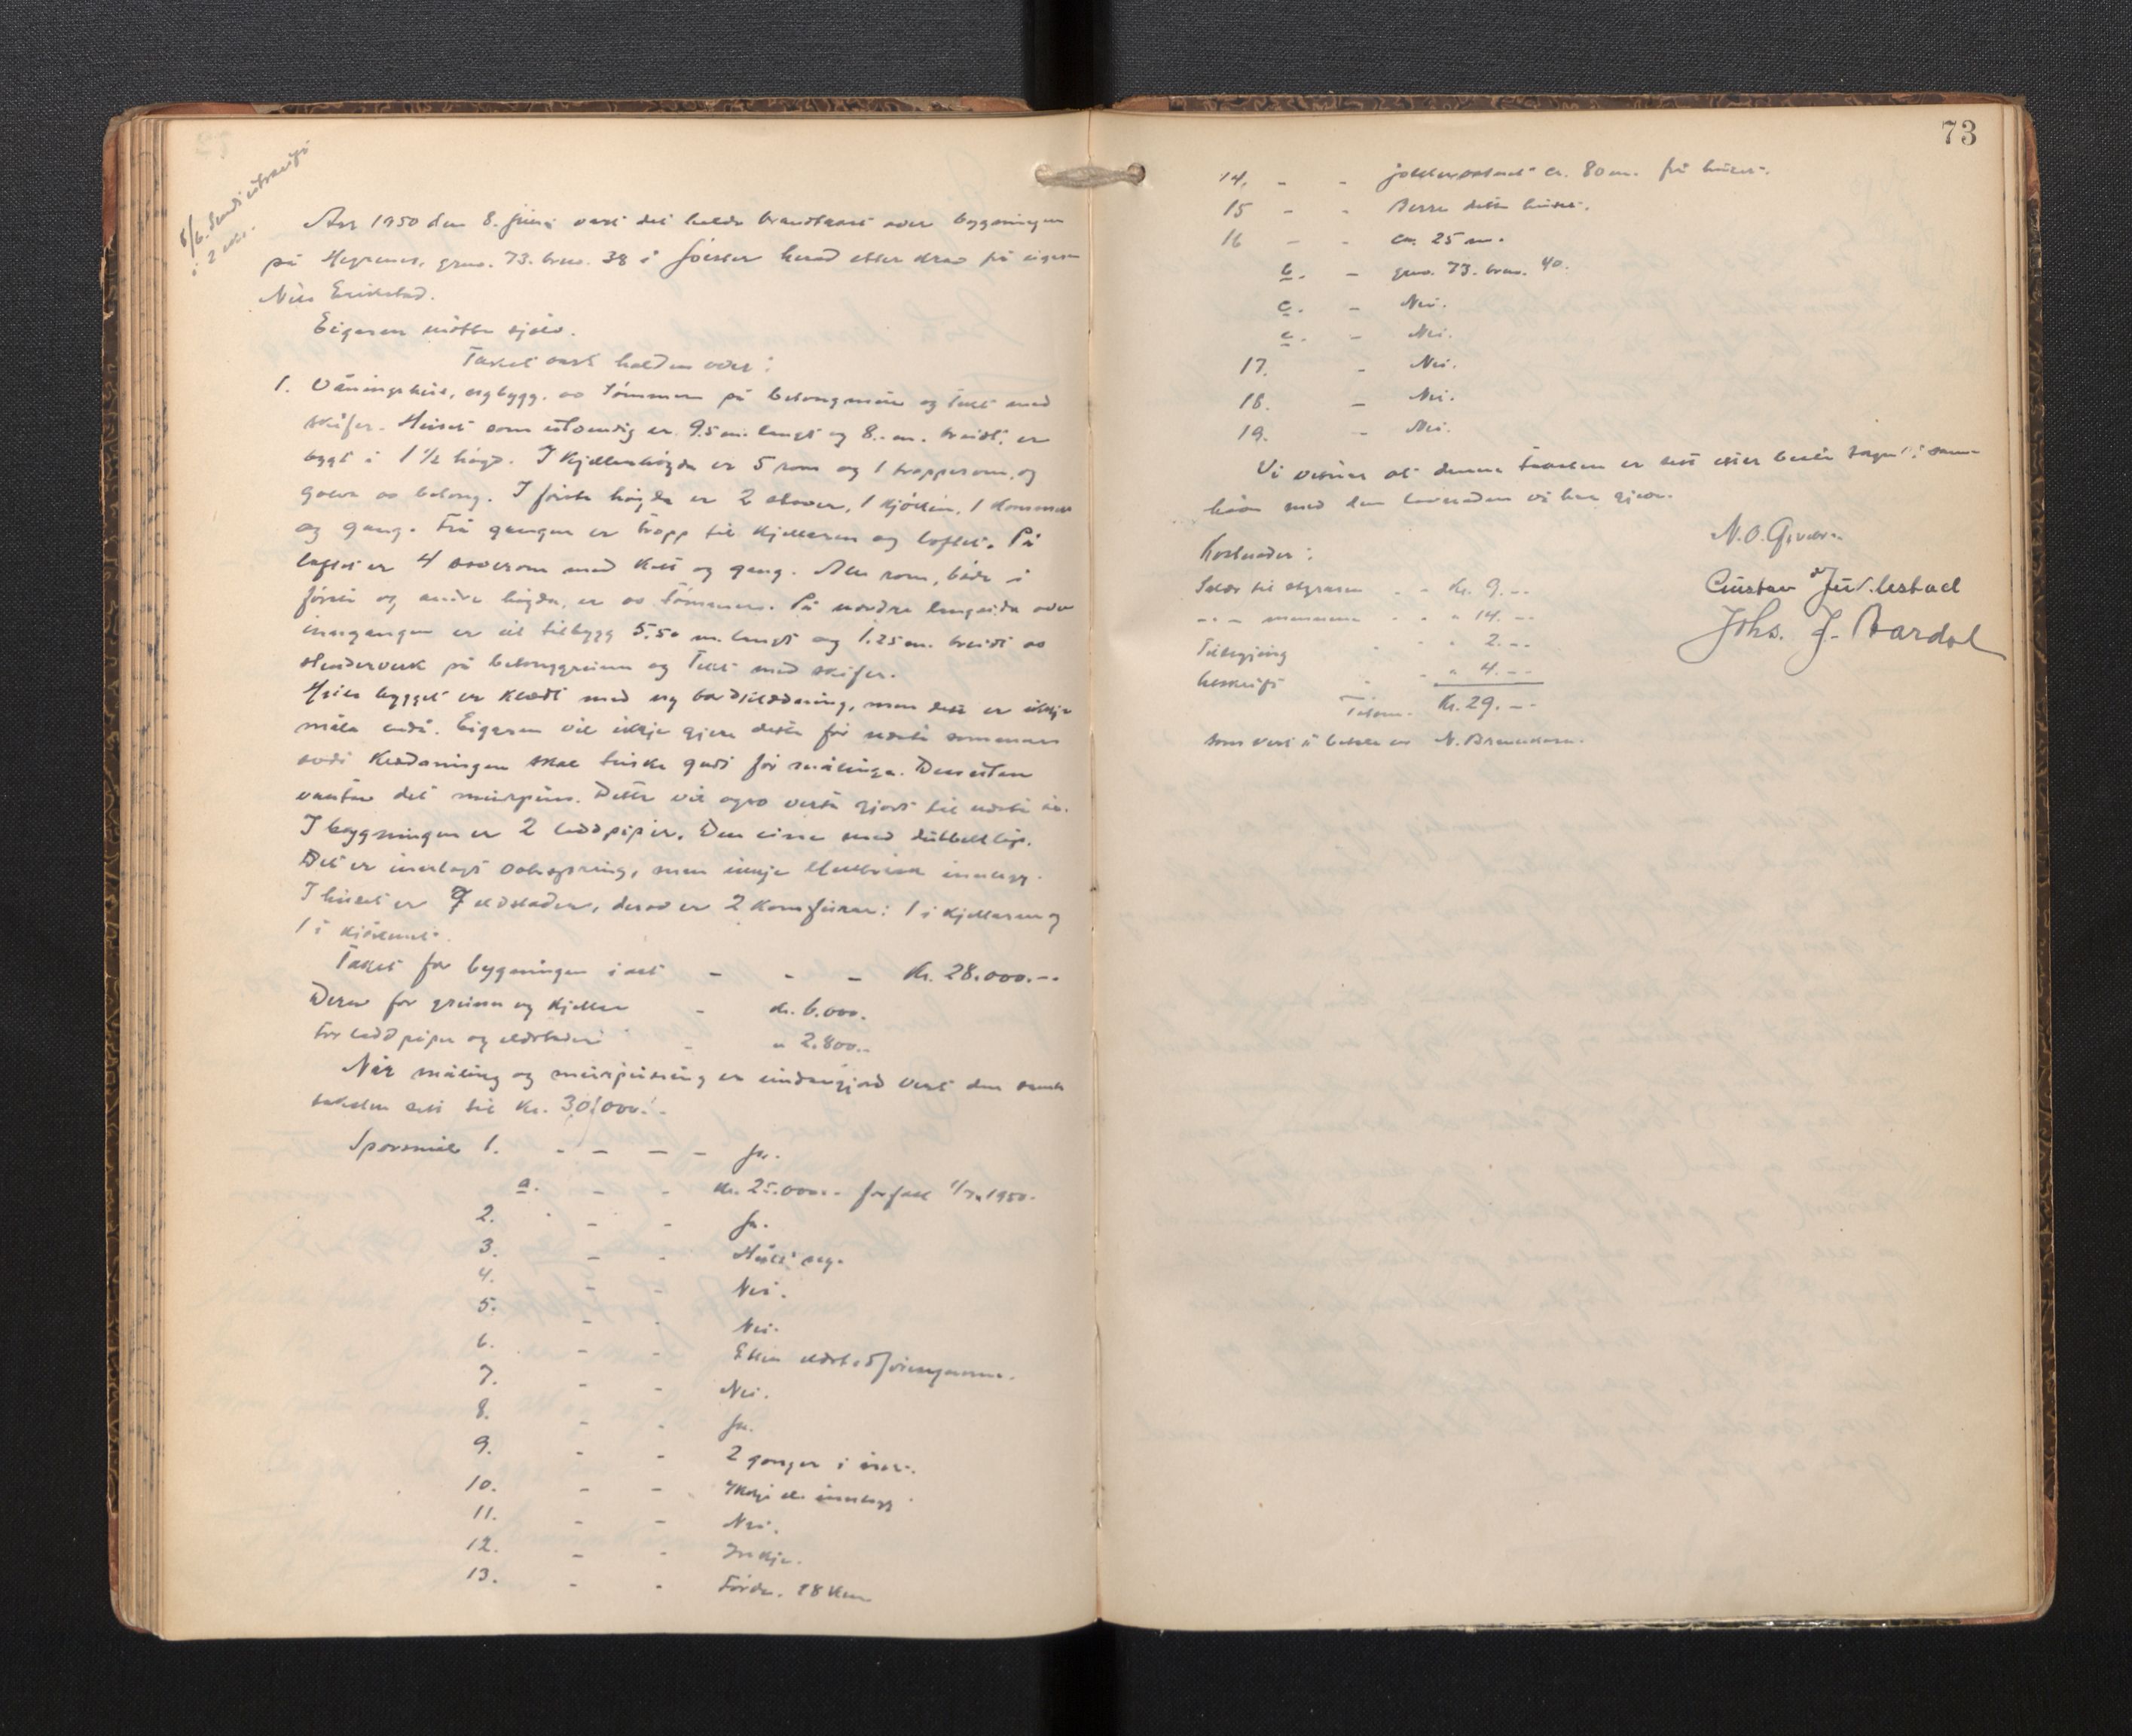 8/6. Sendt utskrift
i 2 eks.
Aar 1950 den 8. juni vart det halde brandtakst over bygningen
på Hegrenes, gnr. 73. brnr. 38 i Jølster herad etter krav frå eigaren
Nils Eikestad.
Eigaren møtte sjølv.
Takst vart halden over:
1. Våningshus, nybygg. av tømmer på betongmur og tekt med
skifer. Huset som utvendig er 9.5 m. langt og 8.- m. breidt, er
bygt i 1 1/2 høgd. I kjellerhøgda er 5 rom og 1 trapperom, og
golv av betong. I fyrste høgda er 2 stover, 1 kjøken, 1 kammer
og gang. Frå gangen er trapp til kjelleren og loftet. På
loftet er 4 soverom med kott og gang. Alle rom, både i
fyrste og andre høgda, er av tømmer. På nordre langsida over
inngangen er eit tilbygg 5.50 m. langt og 1.25 m. breidt av
stenderverk på betonggrunn og tekt med skifer.
Heile bygget er klædt med ny bordklædning, men dette er ikkje
måla endå. Eigaren vil ikkje gjera dette før neste sommar
avdi klædningen skal turke godt før målinga. Dessutan
vantar det murpuss. Dette vil også verta gjort til neste år.
I bygningen er 2 loddpiper. Den eine med dubbelt løp.
Det er innlagt vatsspring, men ikkje elektrisk innlegg.
I huset er 7 eldstader, derav er 2 komfurar: 1 i kjelleren og
1 i kjøkenet.
Takst for bygningen i alt - - - Kr. 28.000.--
Derav for grunn og kjeller - kr. 6.000.
For loddpiper og eldstader - " 2.800.-
Når måling og murpussing er undangjord vert den samla
taksten sett til kr. 30.000.-
Spørsmål 1. - - - - Ja.
a. - - kr. 25.000.- forfall 1/7.1950.
2. - - Ja.
3. - - Huseig.
4. - - Nei.
5. - - Nei.
6. - - Etter eldstadføresegnene.
7. - - Nei.
8. - - Ja.
9. - - 2 gonger i året.
10. - - Ikkje el. innlegg
11. - - Nei.
12. - - Inkje.
13. - - Førde. 28 km
73
14. - - Jølstervatnet ca. 80 m. frå huset.
15 - - Berre dette huset.
16 - - ca. 25 m.
b. - gnr. 73. brnr. 40.
c. - Nei.
e. - Nei.
17. - Nei.
18. - Nei.
19. - Nei.
Vi vitnar at denne taksten er sett etter beste skyn i sam-
høve med den lovnaden vi har gjeve.
N.O. Gjerde
Gustav J. Årlestad
Johs. J. Bardal
Kostnader:
Salær til skrivaren - - kr. 9.--
-"- mennene - - " 14.--
Tilsegjing - - " 2.--
Utskrift - - " 4.--
Tilsam. Kr. 29.--
som vert å betale av N. Brannkasse.